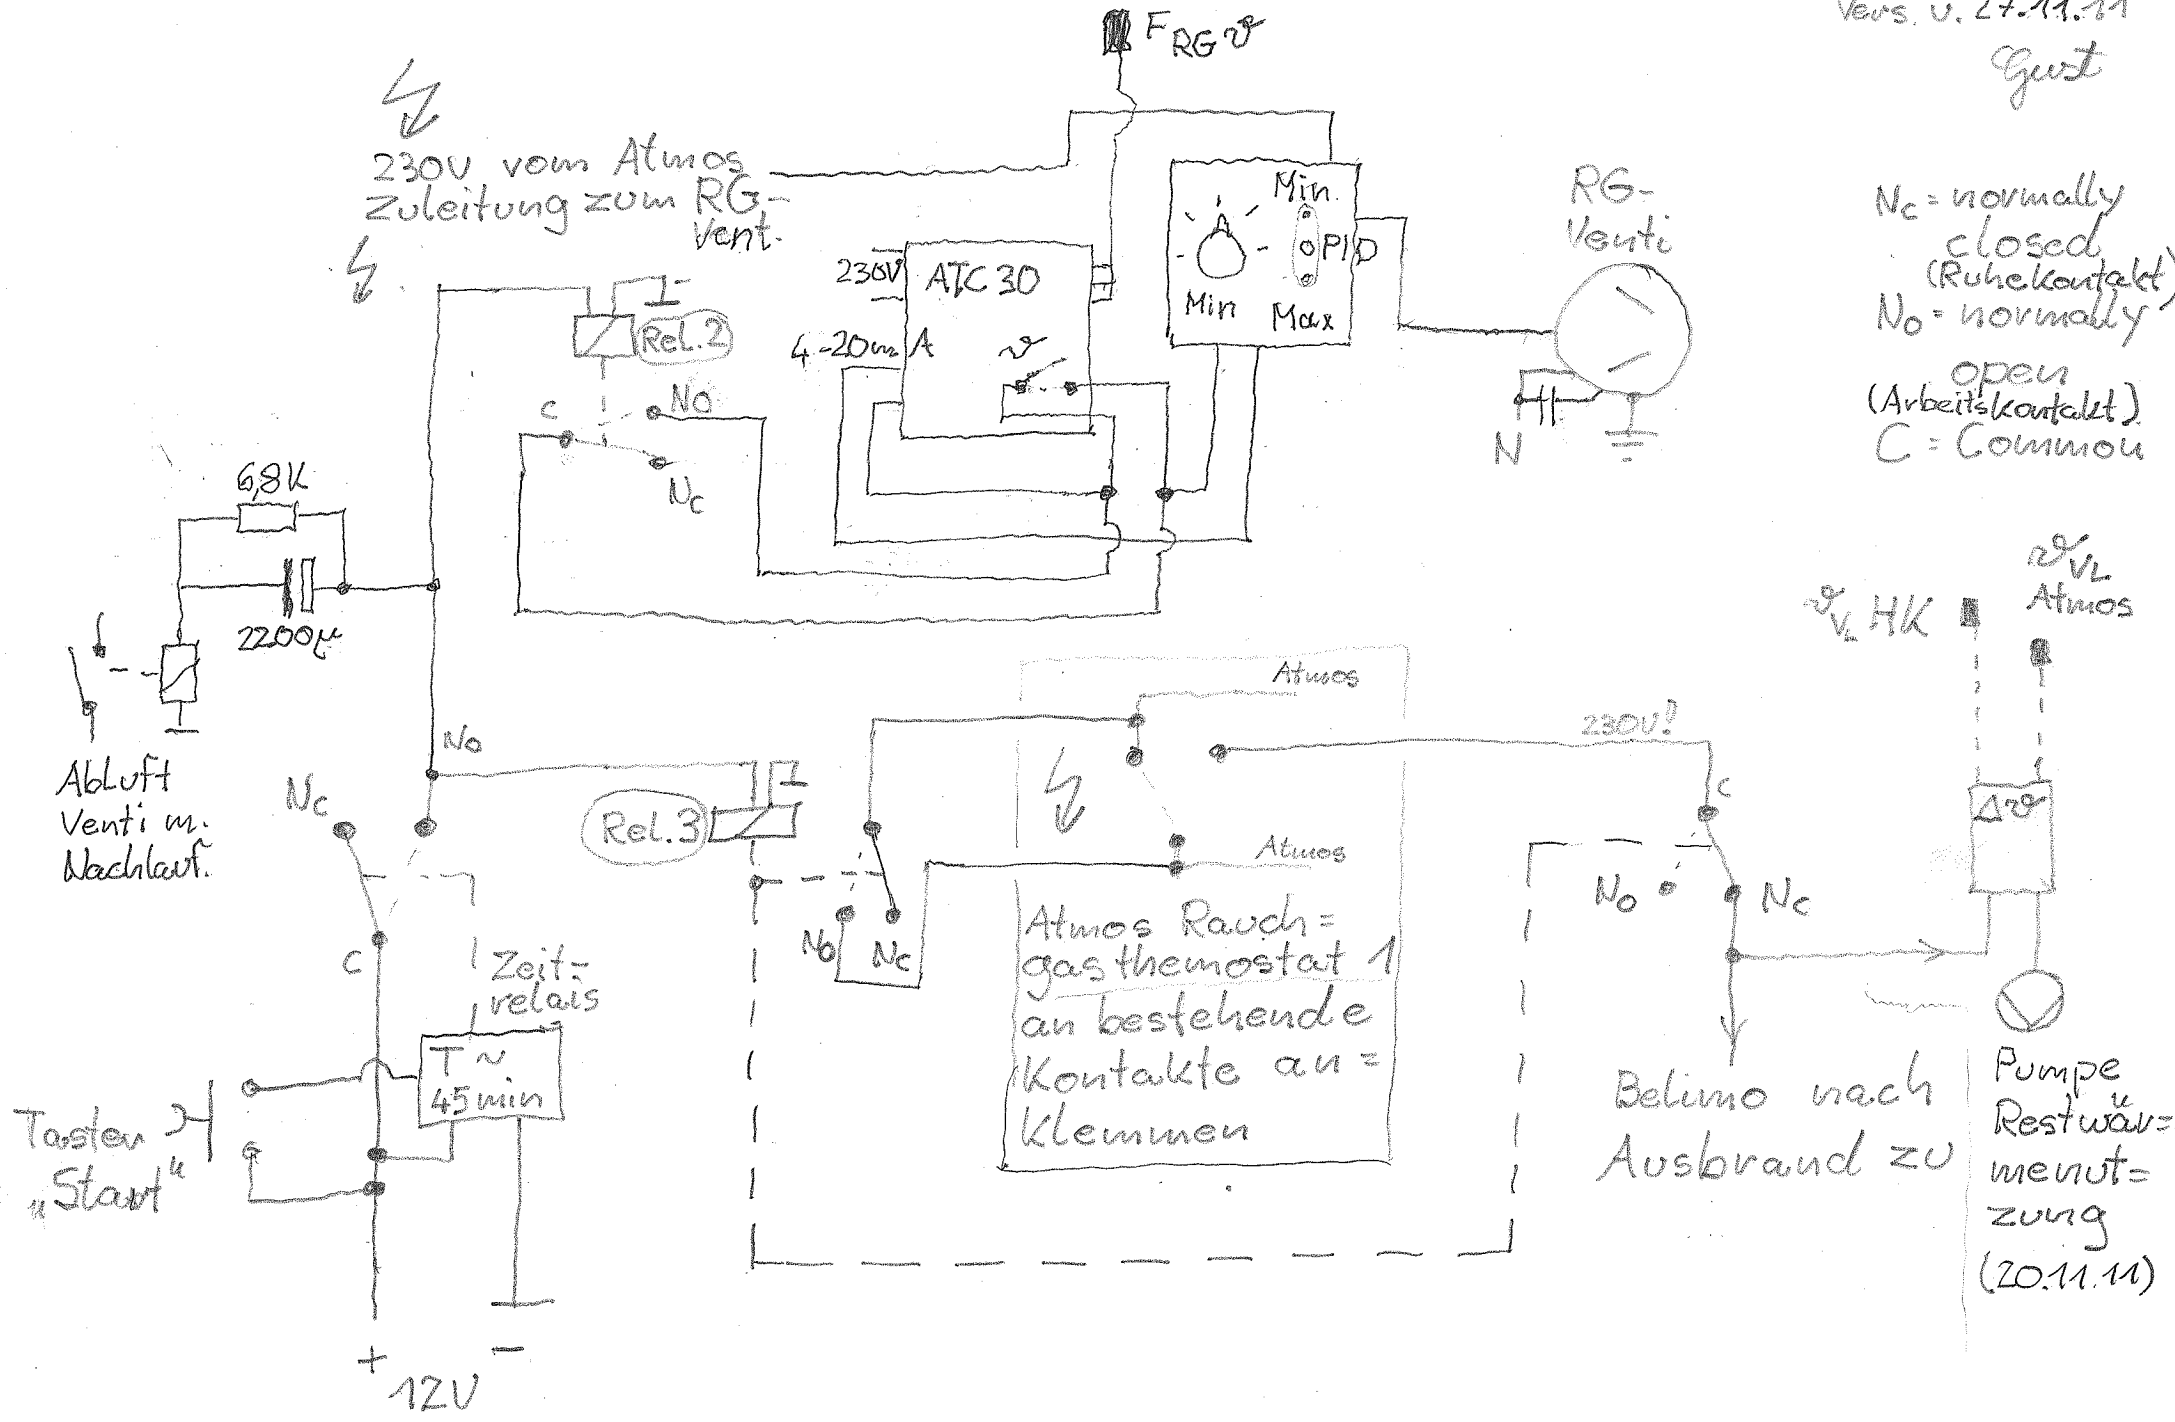 Vers. v. 27.11.11
Gust
F RG ϑ
230V vom Atmos
Zuleitung zum RG-
Vent.
Min.
PID
Min
Max
RG-
Venti
Nc = normally
closed
(Ruhekontakt)
No = normally
open
(Arbeitskontakt)
C = Common
230V
ATC 30
4-20mA
ϑ
Rel. 2
C
No
Nc
N
6,8K
2200µ
Abluft
Venti m.
Nachlauf.
No
Nc
C
Zeit-
relais
T ~
45min
Taster
„Start“
+
-
12V
Rel. 3
No
Nc
Atmos
Atmos
Atmos Rauch=
gasthemostat 1
an bestehende
Kontakte an=
Klemmen
230V!
C
No
Nc
Belimo nach
Ausbrand zu
ϑ VL HK
ϑ VL
Atmos
Δϑ
Pumpe
Restwär=
menut=
zung
(20.11.11)